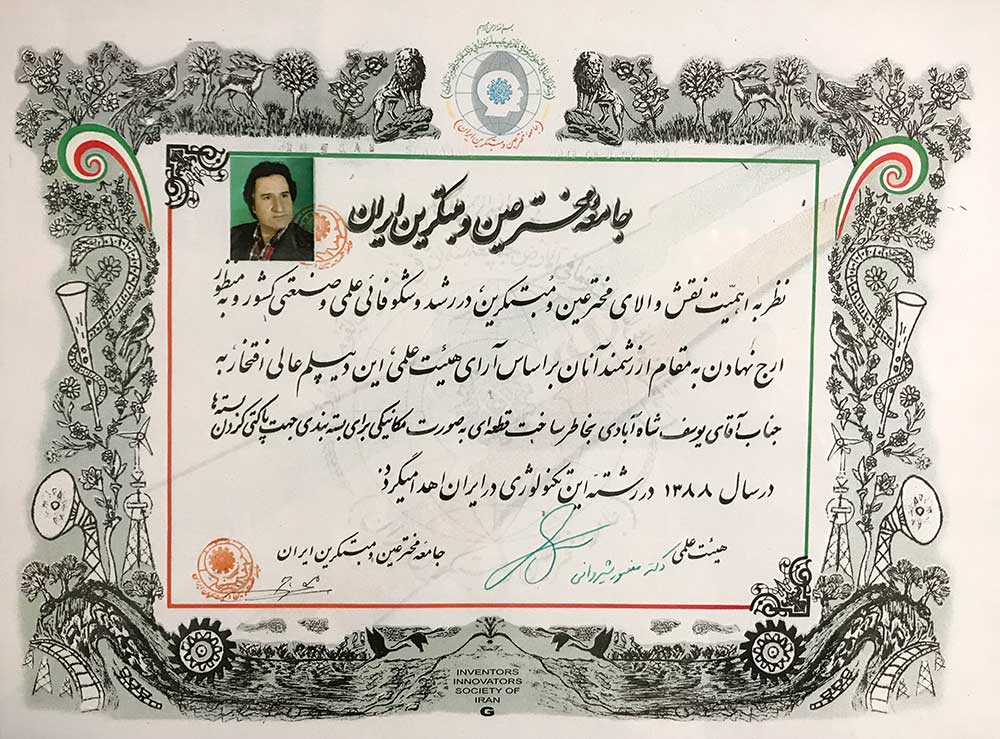 جامعه مخترعین و مبتکرین ایران
جامعه مخترعین و مبتکرین ایران
نظر به اهمیّت نقش والای مخترعین و مبتکرین در رشد و شکوفائی علمی و صنعتی کشور و به منظور
ارج نهادن به مقام ارزشمند آنان بر اساس آرای هیئت علمی این دیپلم عالی افتخار به
جناب آقای یوسف شاه آبادی بخاطر ساخت قطعه‌ای به صورت مکانیکی برای بسته بندی جهت پاکتی کردن بسته‌ها
در سال ۱۳۸۸ در رشته این تکنولوژی در ایران اهدا میگردد
هیئت علمی
دکتر منصور
جامعه مخترعین و مبتکرین ایران
INVENTORS
INNOVATORS
SOCIETY OF
IRAN
G